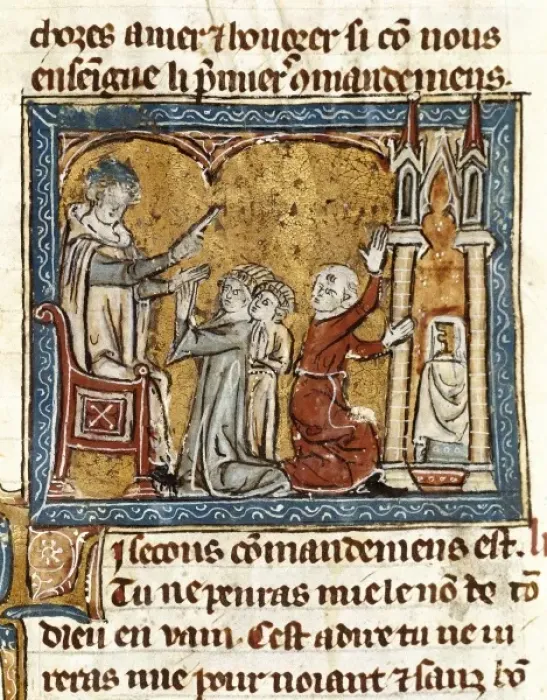 chozes amer ⁊ honorer si cō nous
enseigne li p̄mier ꝯmandemens.
LI secons cōmandemens est.
Tu ne penras mie le nō de tō
dieu en vain. Cest a dire tu ne iu
reras mie pour noiant ⁊ sanz bō